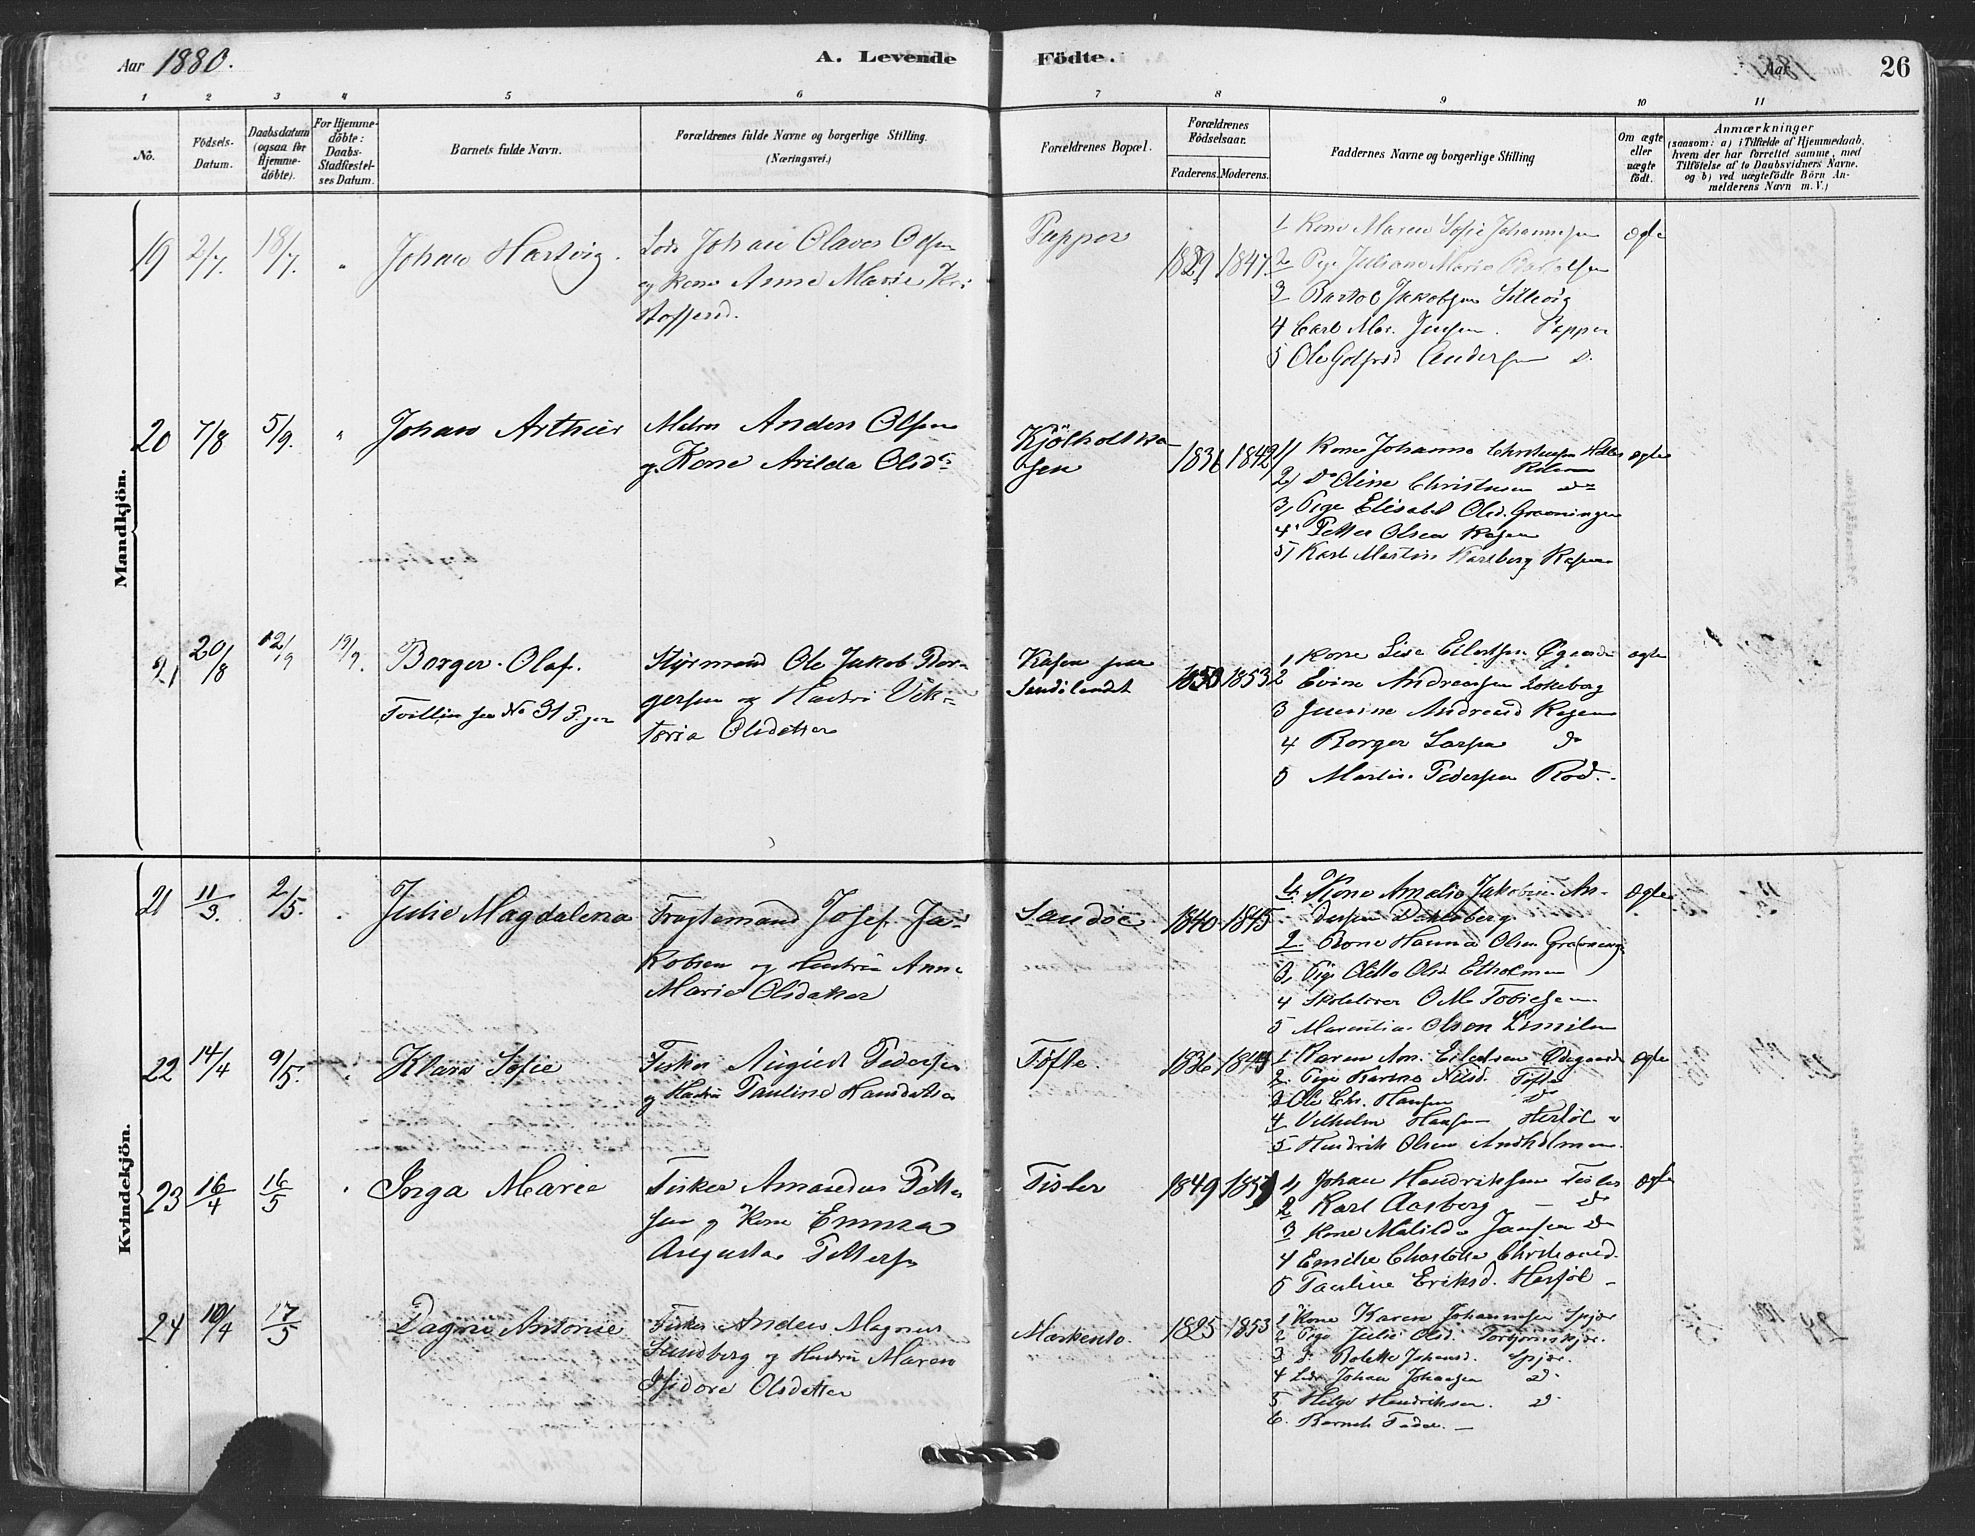 Aar 1880.
A. Levende
Födte.
Aar
26
1 2 3 4 5 6 7 8 9 10 11
No.
Födsels-
Datum.
Daabsdatum
(ogsaa for
Hjemme-
döbte).
For Hjemme-
döbte:
Daabs-
Stadfæstel-
ses Datum.
Barnets fulde Navn.
Forældrenes fulde Navne og borgerlige Stilling.
(Næringsvei.)
Forældrenes Bopæl.
Forældrenes
Födselsaar.
Faderens. Moderens.
Faddernes Navne og borgerlige Stilling
Om ægte
eller
uægte
födt.
Anmærkninger
(saasom: a) i Tilfælde af Hjemmedaab,
hvem der har forrettet samme, med
Tilföielse af to Daabsvidners Navne,
og b) ved uægtefödte Börn An-
melderens Navn m. V.)
Mandkjön.
19 2/7. 18/7. " Johan Hartvig.
Lods Johan Olaves Olsen
og Kone Anne Marie Kri
stoffersd.
Papper
1829 1847.
1 Kone Maren Sofie Johannesen
2 Pige Juliane Marie
3 Bartol Jakobsen
4 Carl Mar. Jensen. Papper
5 Ole Andersen d.
Ægte
20 7/8 5/9. " Johan Arthur
Matros Anders Olsen
og Kone Avilda Olsd.
Kjölholtka
sen
1836 1842
1) Kone Johanna Christensen
2) do Oline Christensen do
3, Pige Elisabet Olsd. Graaningen
4 Petter Olsen Kasen
5) Karl Martin Karlsberg Kasen
ægte
21 20/8 12/9 19/9. Borger Olaf.
Tvilling see No 31 Piger
Styrmand Ole Jakob Bor-
gersen og Hustru Vik-
toria Olsdatter
Kasen paa
Sandölandet
1850 1853
1 Kone Lise Eilertsen Ögaarden
2 Evine Andreasen Lökeberg
3 Andreasd Kasen
4 Borger Larsen do
5 Martin Pedersen Röd.
ægte
Kvindekjön.
21 11/3. 2/5. Julie Magdalena
Fragtemand Josef Ja-
kobsen og Hustru Anne
Marie Olsdatter
Sandöe
1840 1845
1. Kone Amalie Jakobine An-
dersen
2. Kone Hanna Olsen
3, Pige Olette Olsd Etholmen
4 Skolelærer O M Tobiesen
5 Olsen
Ægte
22 14/4 9/5. Klara Sofie
Fisker August Pedersen
og Hustru Pauline Hansdatter
Tofte.
1836
1 Karen An. Eilertsen Ödegaarden
2. Pige Karine Nilsd. Tofte
3 Ole Chr. Hansen do
4 Vilhelm Hansen Herföl
5 Hendrik Olsen Andholmen.
Ægte
23 16/4 16/5 Inga Marie
Fisker Amandus Petter
sen og Kone Emma
Augusta Petters
Tisler
1849
1 Johan Hendriksen Tisler
2 Karl Aasberg do
3 Kone Matilda Jansen do
4 Emilie Charlotte
5 Pauline Eriksd. Herföl
Ægte
24 10/4 17/5 Dagne Antonie
Fisker Anders Magnus
Sundberg og Hustru Maren
Isidore Olsdatter
1825 1853
1 Kone Karen Johannesen Spjær
2 Pige Julie Olsd. Torbjörnskjær.
3 d. Bolette Johansd. Spjær.
4 Lods Johan Johansen d.
5 Helge Hendriksen. d.
6. Barnets Fader.